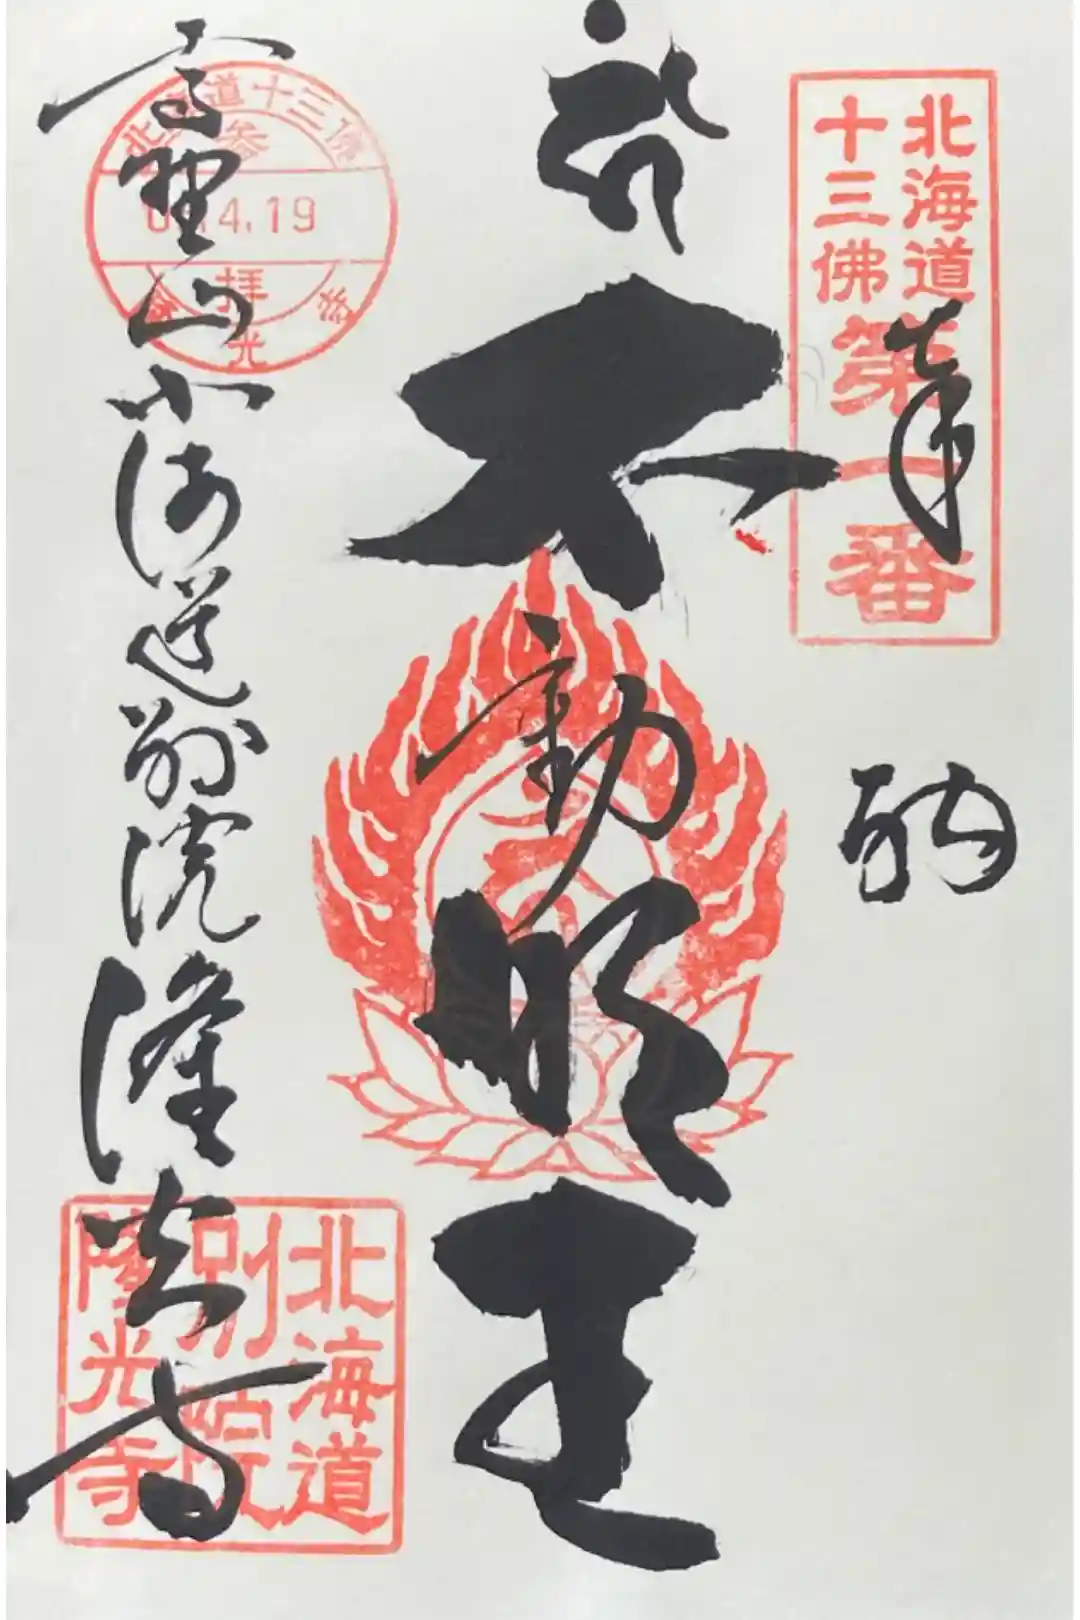 北海道
十三佛
第一番
奉
納
不動明王
高野山北海道別院隆光寺
北海道十三佛
参
4.19
拝
隆光寺
北海道
別院
隆光寺